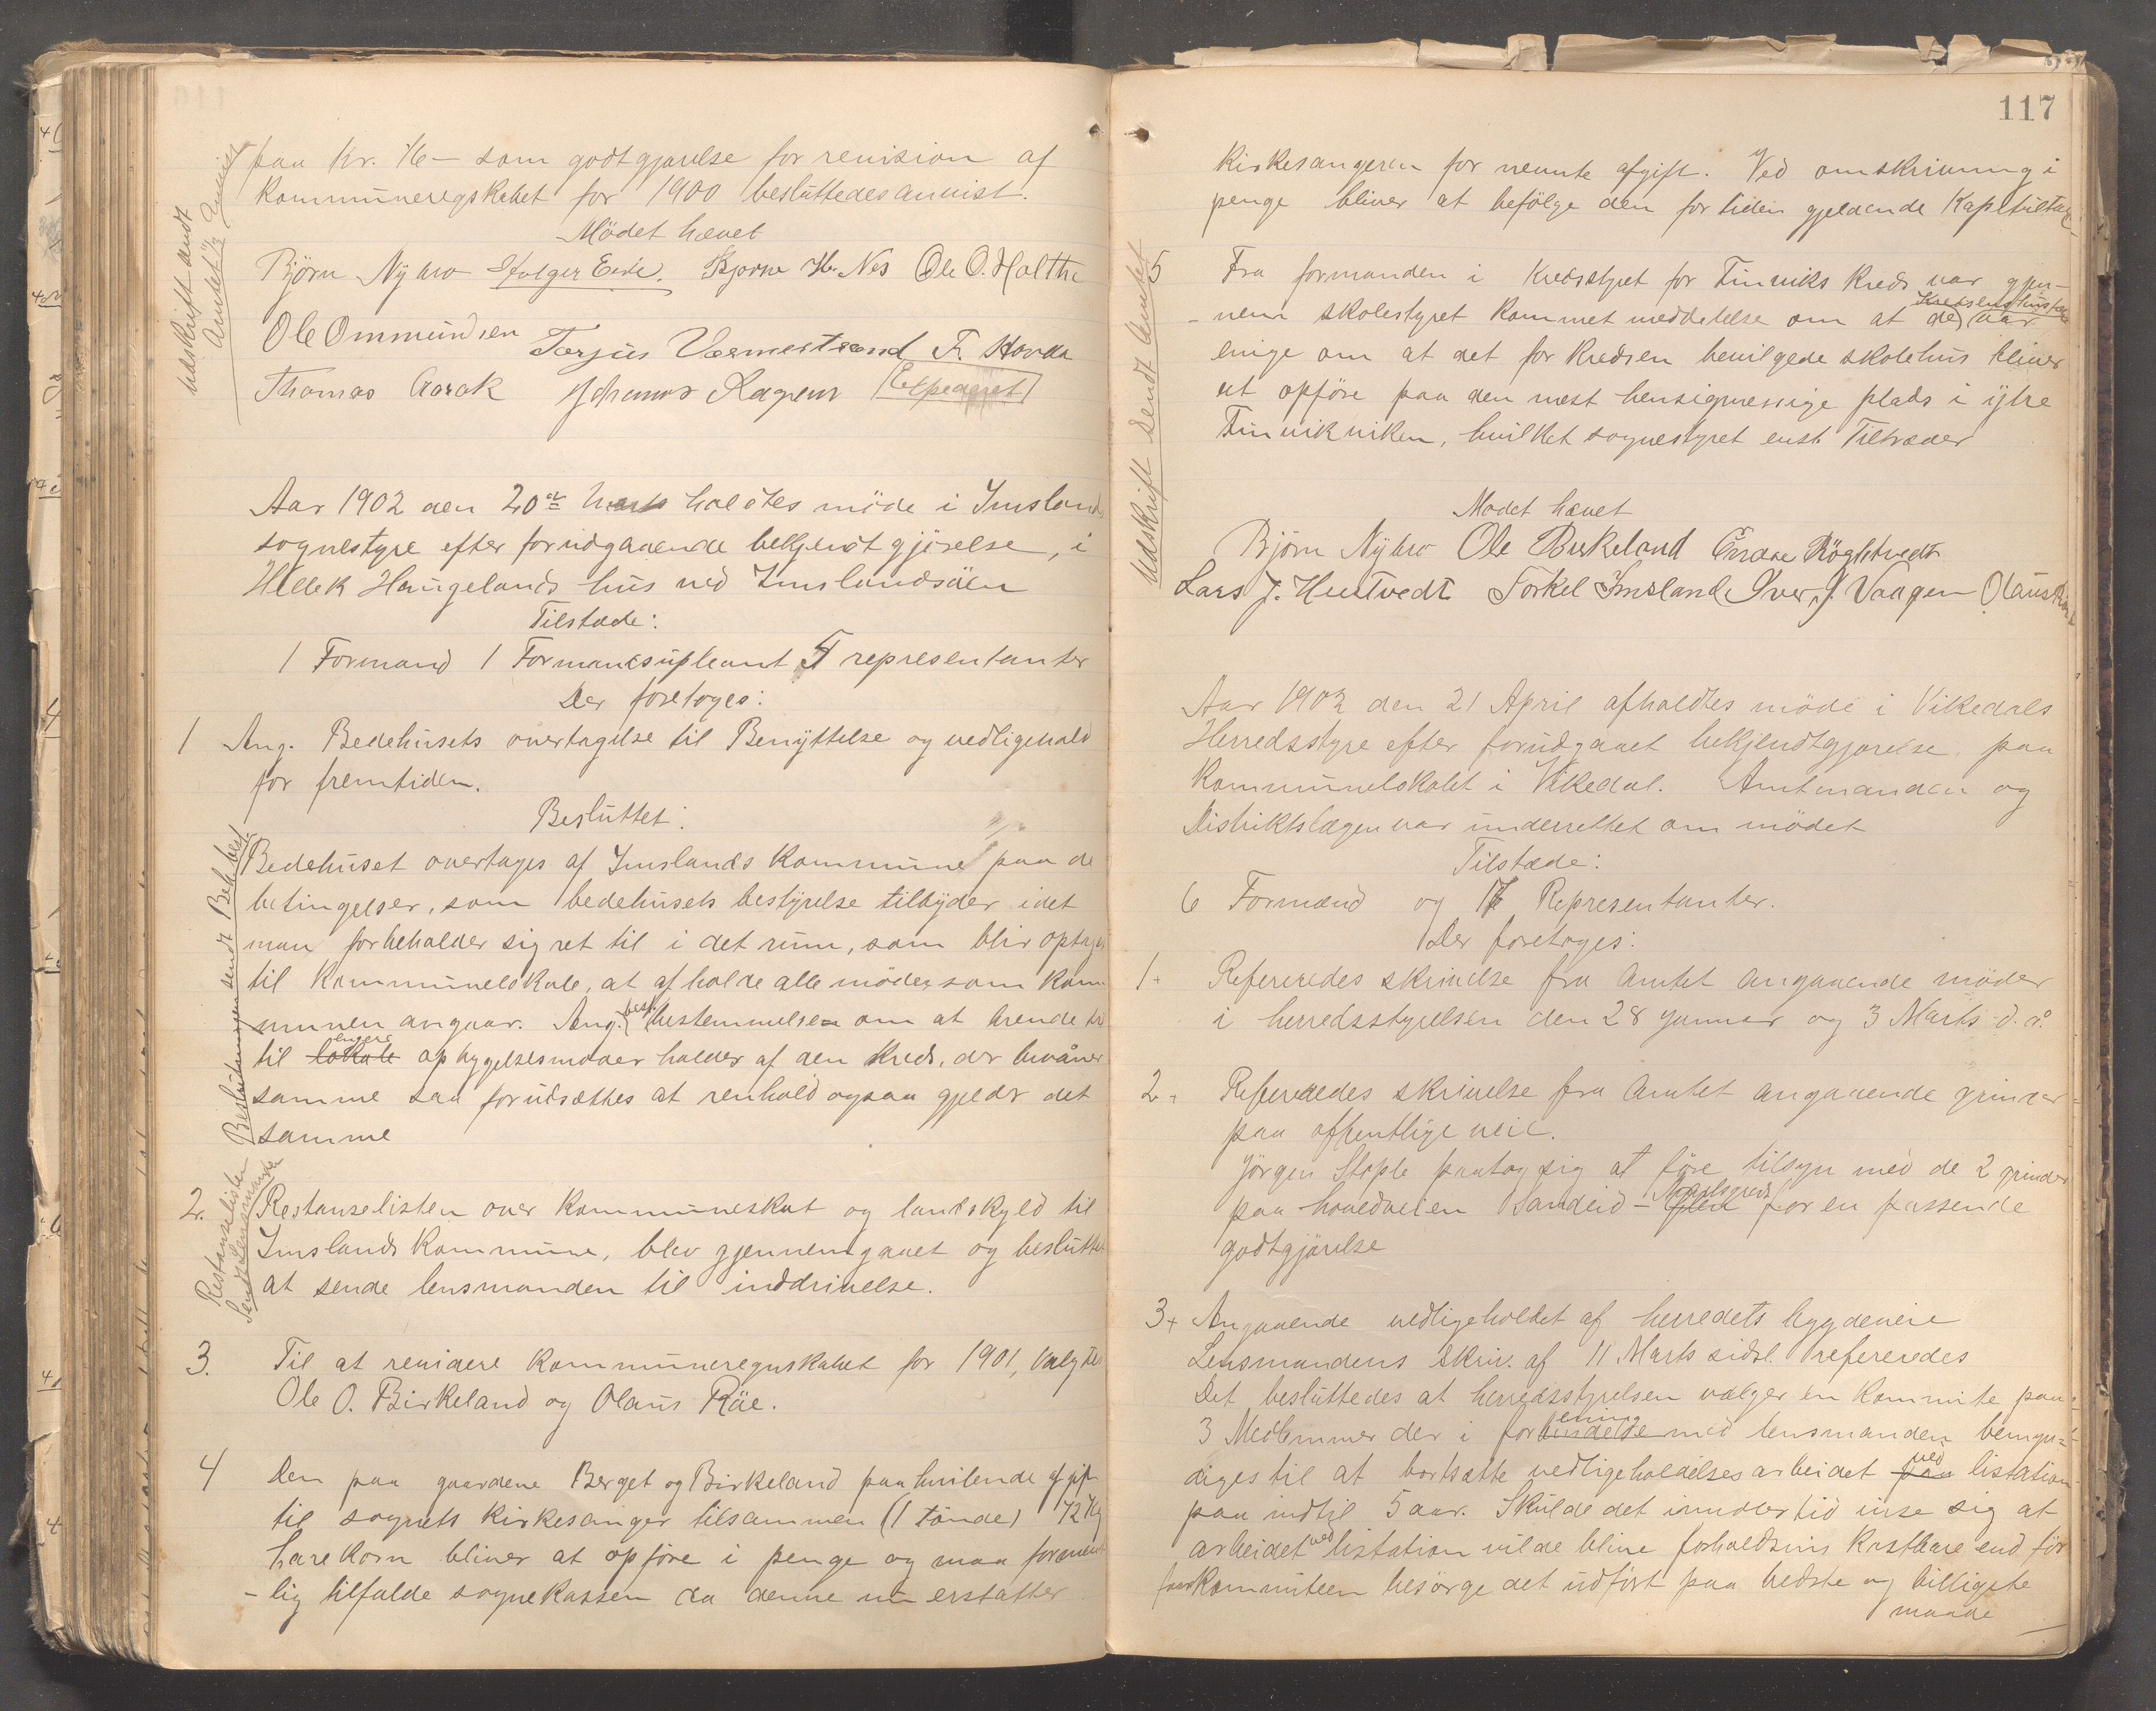 paa Kr. 16 – som godtgjørelse for revision af
Kommuneregskabet for 1900 besluttedes anvist.
Mödet hævet
Björn Nÿbro Holger Eide. Bjarne H. Nes Ole O. Holthe
Ole Ommundsen Torjus Vermestrand F. Hovda
Thomas Aarak Johannes Ragnur Expederet
Udskrift sendt
Amtet Anvist
Aar 1902 den 20de Marts holdtes möde i Imslands
sognestyre efter forudgaaende bekjendtgjörelse, i
Hellek Haugelands hus ved Imslandsöen
Tilstede:
1 Formand 1 Formandsupleant 5 representanter
Der foretoges:
1 Ang. Bedehusets overtagelse til Benÿttelse og vedligehold
for fremtiden.
Besluttet:
Bedehuset overtages af Imslands Kommune paa de
betingelser, som bedehusets bestÿrelse tilbÿder idet
man forbeholder sig ret til i det rum, som blir optaget
til Kommunelokale, at afholde alle möder som Kom-
munen angaar. Ang. best. bestemmelsen om at
til lokale opbyggelsesmöder holdes af den Kreds, der
samme saa forudsættes at renhold ogsaa gjelder det
samme
Beslutningen sendt Beh. best.
2. Restanselisten over Kommuneskat og landskyld til
Imslands Kommune, blev gjennemgaaet og besluttet
at sende lensmanden til inddrivelse.
Restanselisten
Sendt Lensmanden
3. Til at revidere Kommuneregnskabet for 1901, valgtes
Ole O. Birkeland og Olaus Räe.
4 Den paa gaardene Berget og Birkeland paahvilende afgift
til sognets Kirkesanger tilsammen (1 tönde) 72 Kg
havekorn bliver at opföre i penge og maa forment-
-lig tilfalde sognekassen da denne nu erstatter
117
Kirkesangeren for nevnte afgift. Ved omskrivning i
penge bliver at befölge den for tiden gjeldende Kapiteltakst
5 Fra formanden i Kredsstyret for Finviks Kreds var gjen-
-nem skolestyret kommet meddelelse om at de var
enige om at det for Kredsen bevilgede skolehus bliver
at opföre paa den mest hensigmessige plads i ÿtre
Finvikviken, hvilket sognestyret enst. Tiltræder
Udskrift sendt Amtet
Mødet hævet
Björn Nÿbro Ole Birkeland Endre Bögletvedt
Lars J. Hustvedt Torkel Imsland Iver J. Vaagen Olaus
Aar 1902 den 21 April afholdtes möde i Vikedals
Herredsstyre efter forudgaaet bekjendtgjørelse paa
Kommunelokalet i Vikedal. Amtmanden og
Distriktslægen var underrettet om mödet
Tilstede:
6 Formænd og 17 Representanter.
Der foretoges:
1. Refereredes skrivelse fra Amtet angaaende möder
i herredsstyrelsen den 28 Januar og 3 Marts d. å.
2. Refereredes skrivelse fra Amtet angaaende grinder
paa offentlige veie.
Jörgen Stople paatog sig at före tilsyn med de 2 grinder
paa hovedveien Sandeid – for en passende
godtgjörelse
3. Angaaende vedligeholdet af herredets bygdeveie
Lensmandens skriv. af 11 Marts sidsl. refereredes
Det besluttedes at herredsstyrelsen vælger en Kommite paa
3 Medlemmer der i forbindelse ening med lensmanden bemyn-
diges til at bortsætte vedligeholdelsesarbeidet paa ved listation
paa indtil 5 aar. Skulde det imidlertid vise sig at
arbeidet ved listation vilde blive forholdsvis kostbare end för
faar Kommiteen besörge det udfört paa bedste og billigste
maade